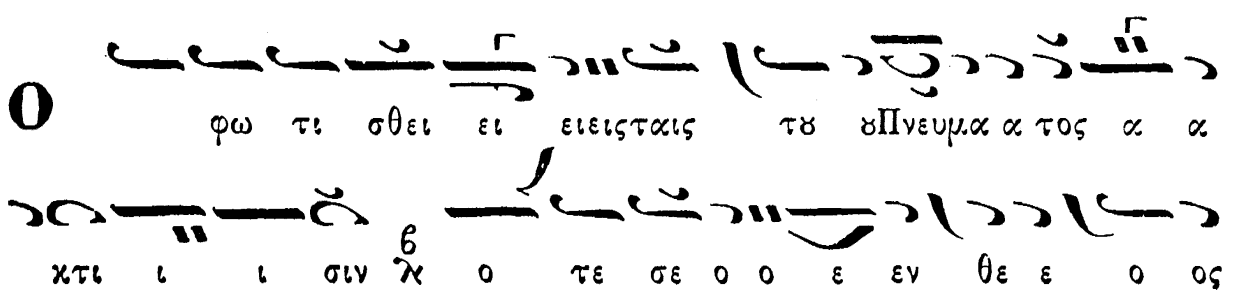 Ο φω τι σθει ει ειεις ταις τȣ ȣ Πνευμα α τος α α
κτι ι ι σιν ϗ ο τε σε ο ο ε εν θε ε ο ος